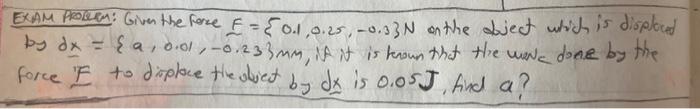 EXAM PROBLEM: Given the force F = {0.1, 0.25, -0.3}N on the object which is displaced
by dx = {a, 0.01, -0.23}mm, if it is known that the work done by the
force F to displace the object by dx is 0.05J, find a?